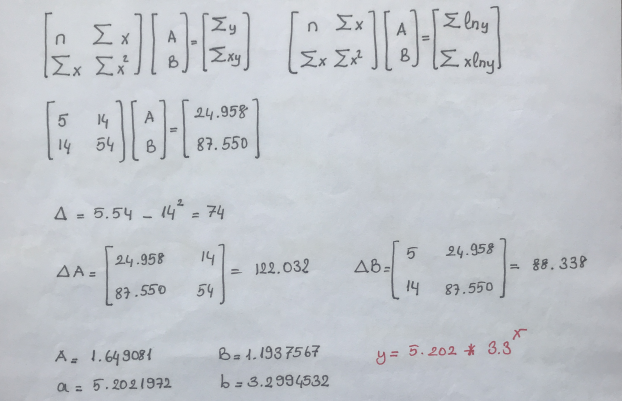 [n Σx; Σx Σx²] [A; B] = [Σy; Σxy]
[n Σx; Σx Σx²] [A; B] = [Σlny; Σxlny]
[5 14; 14 54] [A; B] = [24.958; 87.550]
Δ = 5.54 - 14² = 74
ΔA = [24.958 14; 87.550 54] = 122.032
ΔB = [5 24.958; 14 87.550] = 88.338
A = 1.649081 B = 1.1937567 y = 5.202 * 3.3^x
a = 5.2021972 b = 3.2994532